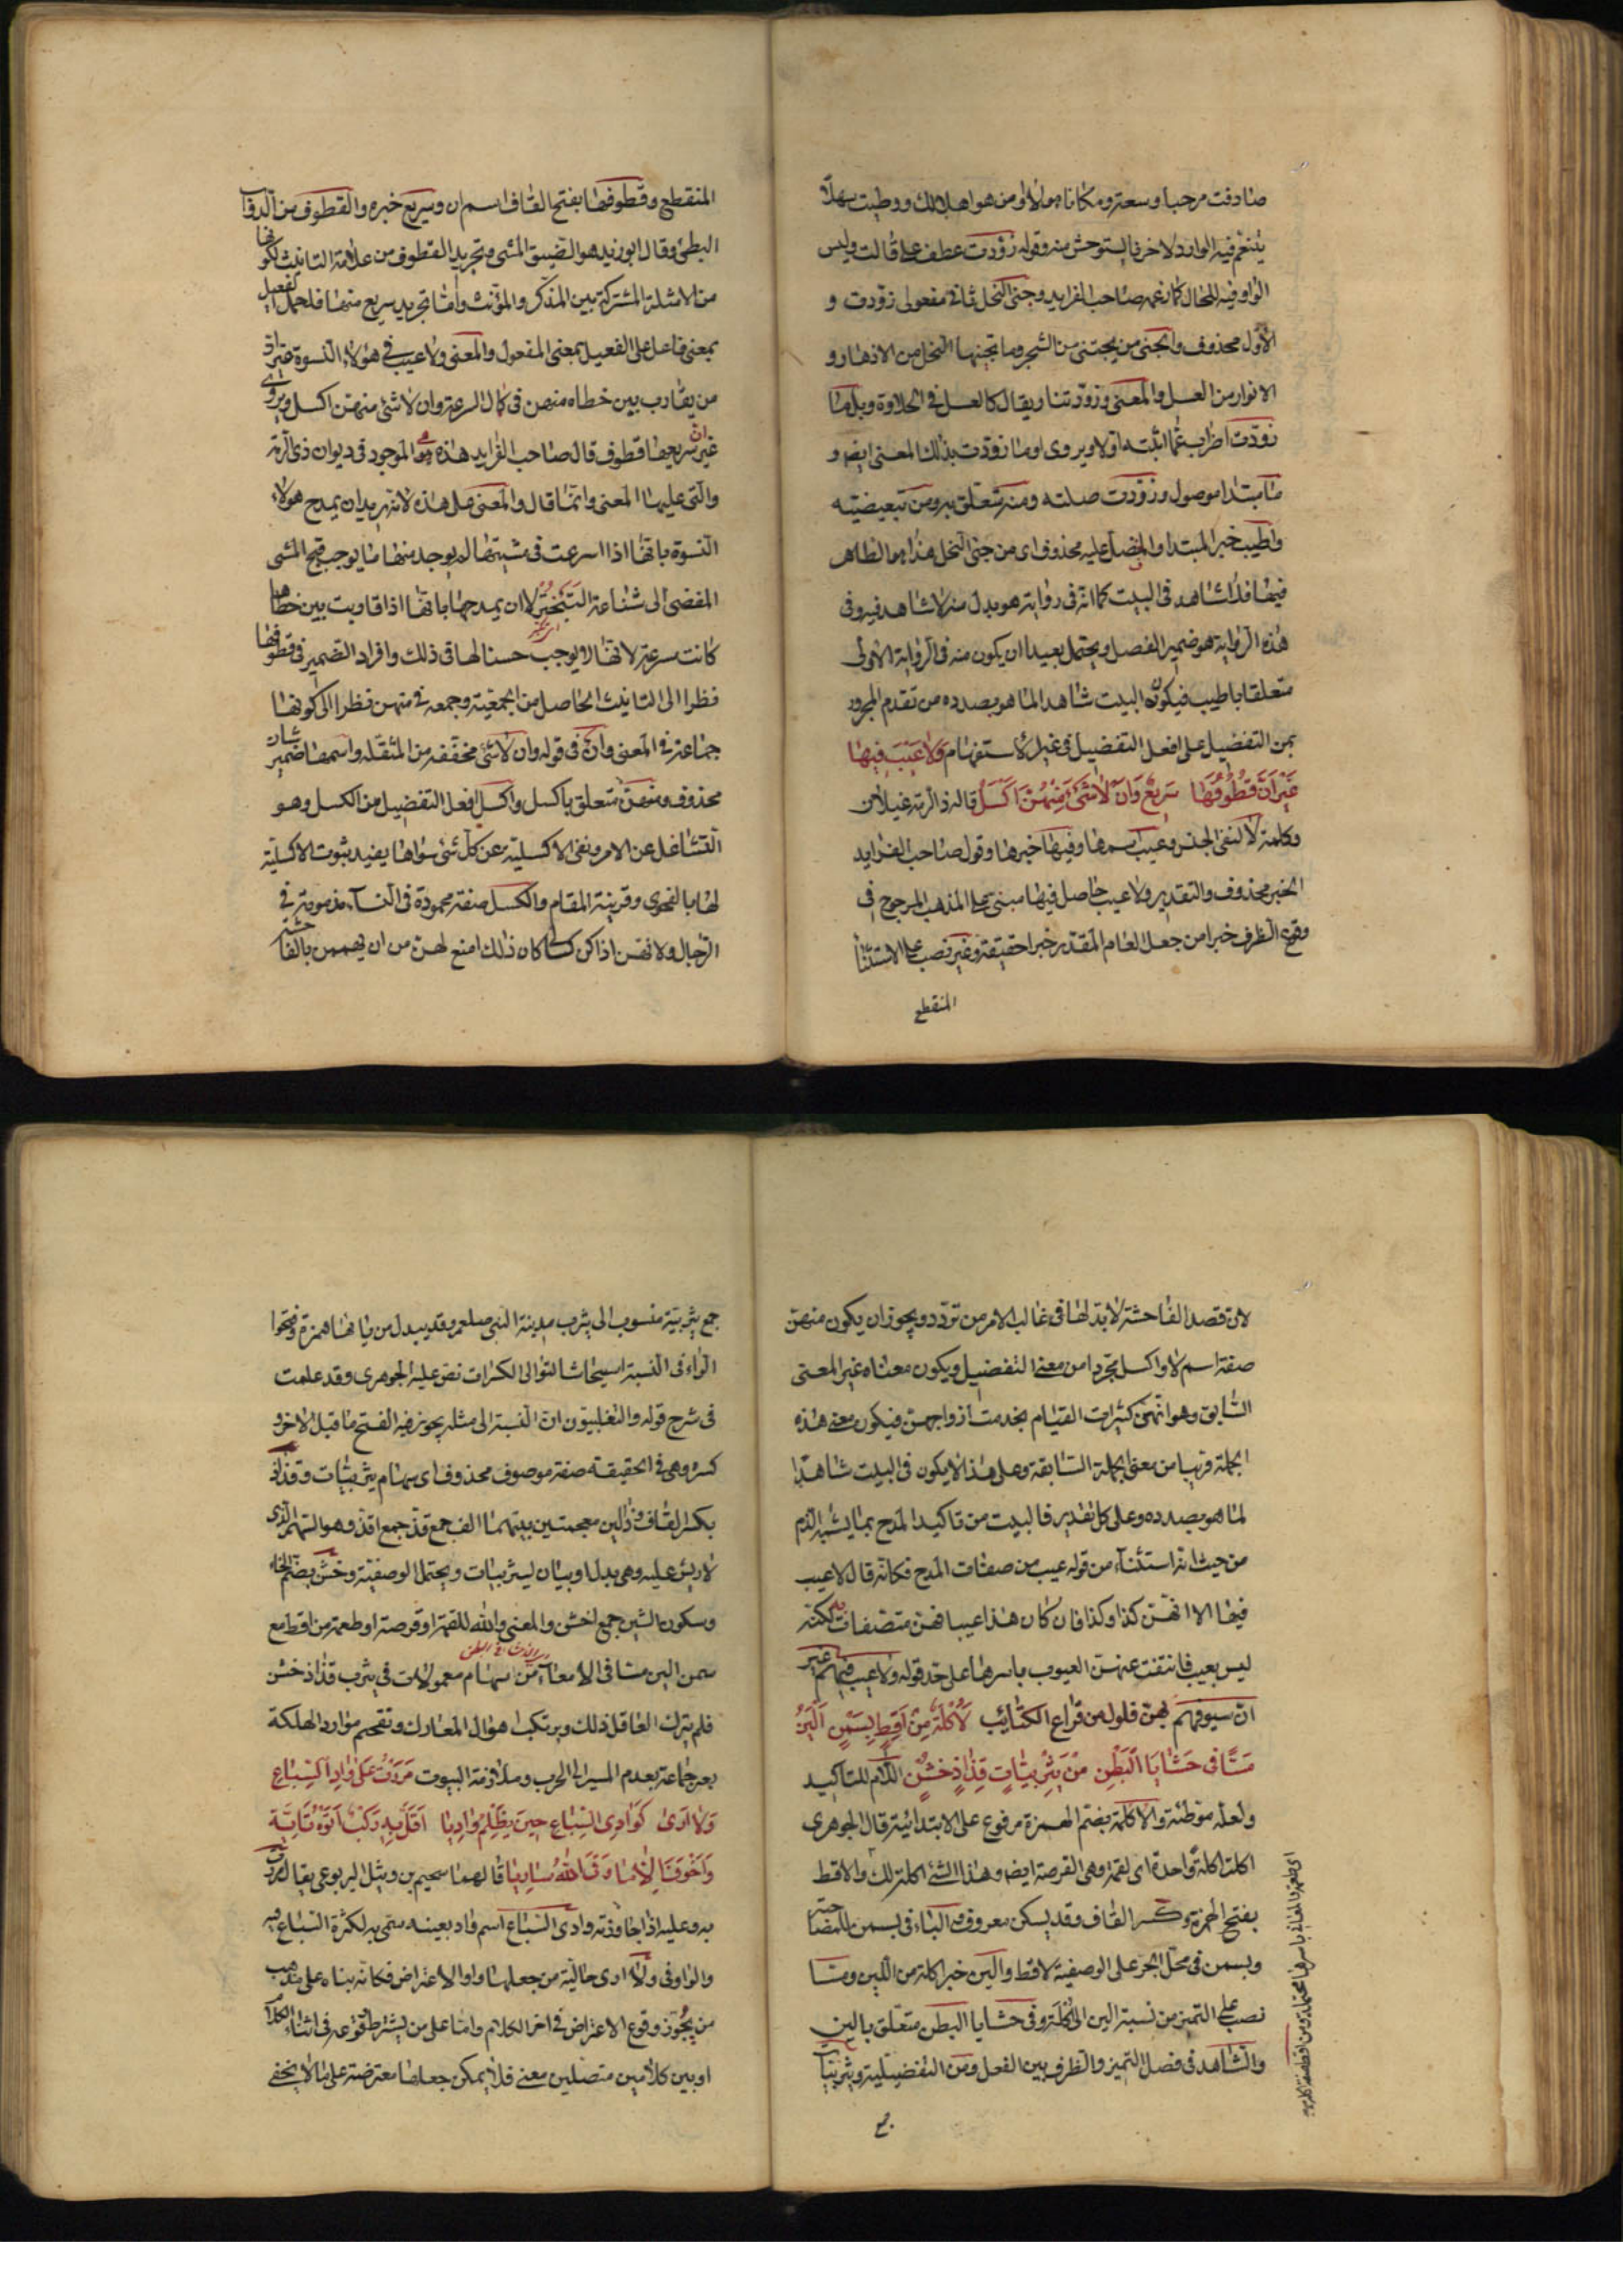 صادفت مرحبا وسعة ومكانا مهلا ومن هو اهل لك ووطيت سهلا
يتنعم فيه الوارد لا حزنا يستوحش منه وقوله زودت عطف على قالت وليس
الواو فيه للحال كما زعمه صاحب الفرايد وجنى النحل ثانى مفعولى زودت و
الاول محذوف والجنى من يجتنى من الشجر وما تجنيها النحل من الازهار و
الانوار من العسل والمعنى وزودتنا ريقا كالعسل فى الحلاوة وبل ما
زودت اضراب عما اثبته اولا ويروى او ما زودت بذلك المعنى ايضا و
ما مبتدا موصول وزودت صلته ومنه متعلق به ومن تبعيضيته
واطيب خبر المبتدا والمفضل عليه محذوف اى من جنى النحل هذا هو الظاهر
فيها فلا شاهد فى البيت كما انه فى رواية هو بدل منه لا شاهد فيه وفى
هذه الرواية هو ضمير الفصل ويحتمل بعيدا ان يكون منه فى الرواية الاولى
متعلقا باطيب فيكون البيت شاهدا لما هو بصدده من تقدم المجرور
بمن التفضيل على افعل التفضيل فى غير الاستفهام وَلا عَيْبَ فِيهَا
غَيْرَ اَنَّ قُطُوفَهَا سَرِيعٌ وَاَنْ لا شَىْءَ مِنْهُنَّ اَكْسَلُ قاله ذا الرمة غيلان
وكلمة لا لنفى الجنس وعيب اسمها وفيها خبرها وقول صاحب الفرايد
الخبر محذوف والتقدير ولا عيب حاصل فيها مبنى على المذهب المرجوح فى
وقوع الظرف خبرا من جعل العام المقدر خبرا حقيقة وغير نصب على الاستثنا
المنقطع
المنقطع وقطوفها بفتح القاف اسم ان وسريع خبره والقطوف من الدواب
البطئ وقال ابو زيد هو الضيق المشى وتجريد القطوف من علامة التانيث لكونها
من الامثلة المشتركة بين المذكر والمؤنث واما تجريد سريع منها فلحمل الفعيل
بمعنى فاعل على الفعيل بمعنى المفعول والمعنى ولا عيب فى هؤلاء النسوة غير ان
من يقارب بين خطاه منهن فى كمال السرعة وان لا شئ منهن اكسل ويروى
غير ان سريعها قطوف قال صاحب الفرايد هذه هى الموجود فى ديوان ذى الرمة
والتى عليها المعنى وانما قال والمعنى على هذه لانه يريد ان يمدح هولاء
النسوة بانها اذا اسرعت فى مشيتها لم يوجد منها ما يوجب قبح المشى
المفضى الى شناعة التبختر لا ان يمدحها بانها اذا قاربت بين خطاها
كانت سرعة لانها لا يوجب حسنا لها فى ذلك وافراد الضمير فى قطوفها
نظرا الى التانيث الحاصل من الجمعية وجمعه فى منهن نظرا الى كونها
جماعة فى المعنى وان فى قوله وان لا شئ مخففة من المثقلة واسمها ضمير شان
محذوف ومنهن متعلق باكسل واكسل افعل التفضيل من الكسل وهو
التثاقل عن الامر ونفى الاكسلية عن كل شئ سواها يفيد ثبوت الاكسلية
لها بالفحوى وقرينة المقام والكسل صفة محمودة فى النساء مذمومة فى
الرجال ولانهن اذا كن كسالى كان ذلك امنع لهن من ان يهممن بالفاحشة
لان قصد الفاحشة لا بد لها فى غالب الامر من تودد ويجوز ان يكون منهن
صفة اسم لا واكسل مجردا من معنى التفضيل ويكون معناه غير المعنى
السابق وهو انهن كثيرات القيام بخدمت ازواجهن فيكون معنى هذه
الجملة قريبا من معنى الجملة السابقة وعلى هذا لا يكون فى البيت شاهدا
لما هو بصدده وعلى كل تقدير فالبيت من تاكيد المدح بما يشبه الذم
من حيث انه استثناء من قوله عيب من صفات المدح فكانه قال لا عيب
فيها الا انهن كذا وكذا فان كان هذا عيبا فهن متصفات به لكنه
ليس بعيب فانتفت عنهن العيوب باسرها على حد قوله ولا عيب فيهم غير
ان سيوفهم بهن فلول من قراع الكتائب لَاُكْلَةٌ مِنْ اَقِطٍ بِسَمْنٍ اَلْيَنُ
مَسًّا فى حَشَايَا الْبَطْنِ مِنْ يَثْرِبِيَّاتٍ قِذَاذٍ خُشْنٍ اللام للتاكيد
ولعله موطئة والاكلة بضم الهمزة مرفوع على الابتدائية قال الجوهرى
اكلت اكلة واحدة اى لقمة وهى القرصة ايضا وهذا الشئ اكلة لك والاقط
بفتح الهمزة وكسر القاف وقد يسكن معروف والباء فى بسمن للمصاحبة
وبسمن فى محل الجر على الوصفية لاقط والين خبر اكلة من اللين ومسا
نصب على التميز من نسبة الين الى اكلة وفى حشايا البطن متعلق بالين
والشاهد فى فصل التميز والظرف بين الفعل ومن التفضيلية ويثربيات
جمع
جمع يثربية منسوب الى يثرب مدينة النبى صلعم وقد يبدل من يائها همزة وفتحوا
الراء فى النسبة استيحاشا لتوالى الكسرات نص عليه الجوهرى وقد علمت
فى شرح قوله والتغلبيون ان النسبة الى مثله يجوز فيه الفتح ما قبل الاخر و
كسره وهى فى الحقيقة صفة موصوف محذوف اى سهام يثربيات وقذاذ
بكسر القاف وذالين معجمتين بينهما الف جمع قذ جمع اقذ وهو السهم الذى
لا ريش عليه وهى بدل او بيان ليثربيات ويحتمل الوصفية وخشن بضم الخاء
وسكون الشين جمع اخشن والمعنى والله للقمة او قرصة او طعمة من اقط مع
سمن الين مسا فى الامعاء من سهام معمولات فى يثرب قذاذ خشن
فلم يترك العاقل ذلك ويرتكب اهوال المعارك وتقحم موارد الهلكة
يعير جماعة بعدم المسير الى الحرب وملازمة البيوت مَرَرْتُ عَلٰى وَادِ السِّبَاعِ
وَلا اَرٰى كَوَادِى السِّبَاعِ حِينَ يُظْلِمُ وَادِيًا اَقَلَّ بِهِ رَكْبٌ اَتَوْهُ تَايَّةً
وَاَخْوَفَ اِلَّا مَا وَقَى اللهُ سَارِيًا قالهما سحيم بن وثيل اليربوعى يقال مررت
به وعليه اذا جاوزته وادى السباع اسم واد بعينه سمى به لكثرة السباع فيه
والواو فى ولا ارى حالية من جعلها واو الاعتراض فكانه بناه على مذهب
من يجوز وقوع الاعتراض فى اخر الكلام واما على من يشترط وقوعه فى اثناء الكلام
او بين كلامين متصلين معنى فلا يمكن جعلها معترضة على ما لا يخفى